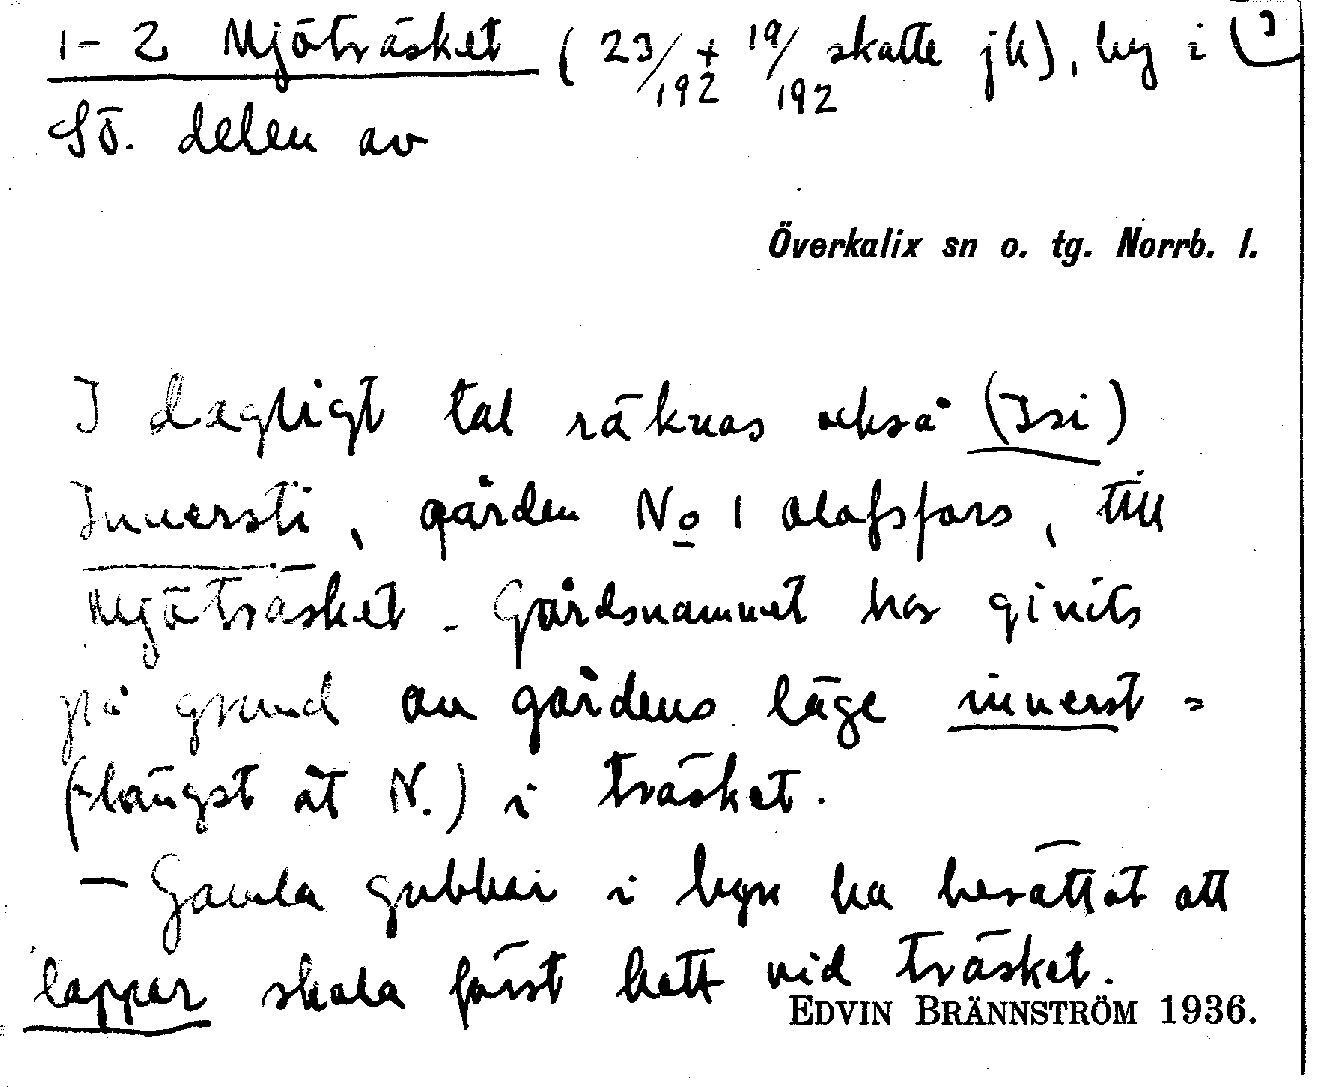 1-2 Mjöträsket ( 23/192 + 19/192 skatte jk), by i (3
SÖ. delen av
Överkalix sn o. tg. Norrb. l.
I dagligt tal räknas också (Isi)
Innersti, gården No 1 Olofsfors, till
Mjöträsket. Gårdsnamnet har givits
på grund av gårdens läge innerst =
(längst åt N.) i träsket.
- Gamla gubbar i byn ha berättat att
lappar skola först bott vid träsket.
EDVIN BRÄNNSTRÖM 1936.